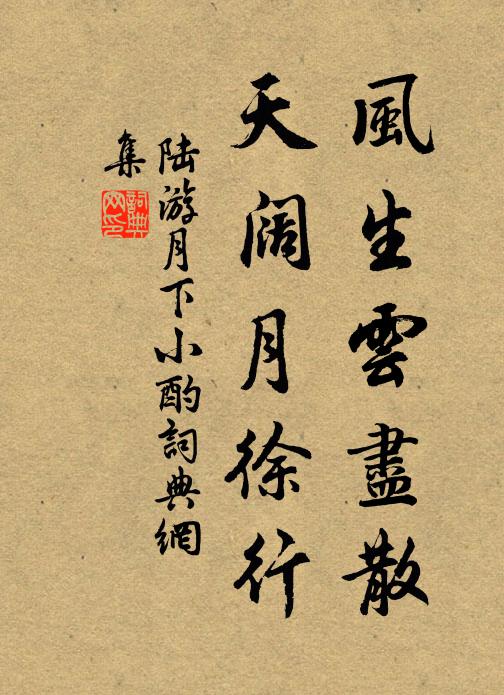 風生雲盡散
天阔月徐行
陆游月下小酌詞典網
集
詞典网印